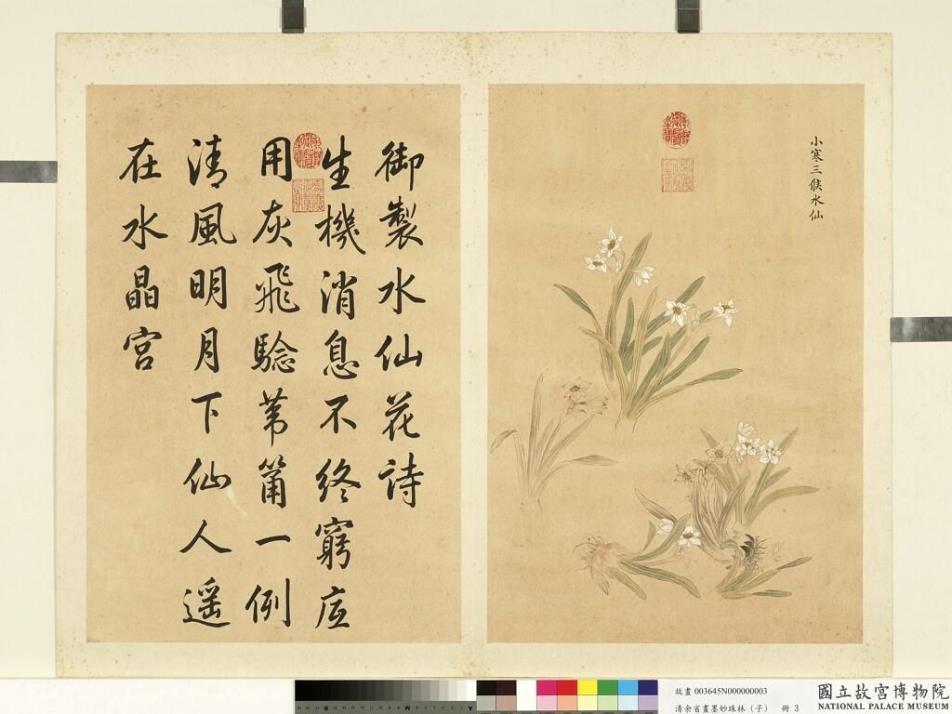 小寒三候水仙
御製水仙花詩
生機消息不終窮底
用灰飛騐葦筩一例
清風明月下仙人遥
在水晶宮
故畫 003645N000000003
清余省畫墨妙珠林（子） 冊 3
國立故宮博物院
NATIONAL PALACE MUSEUM